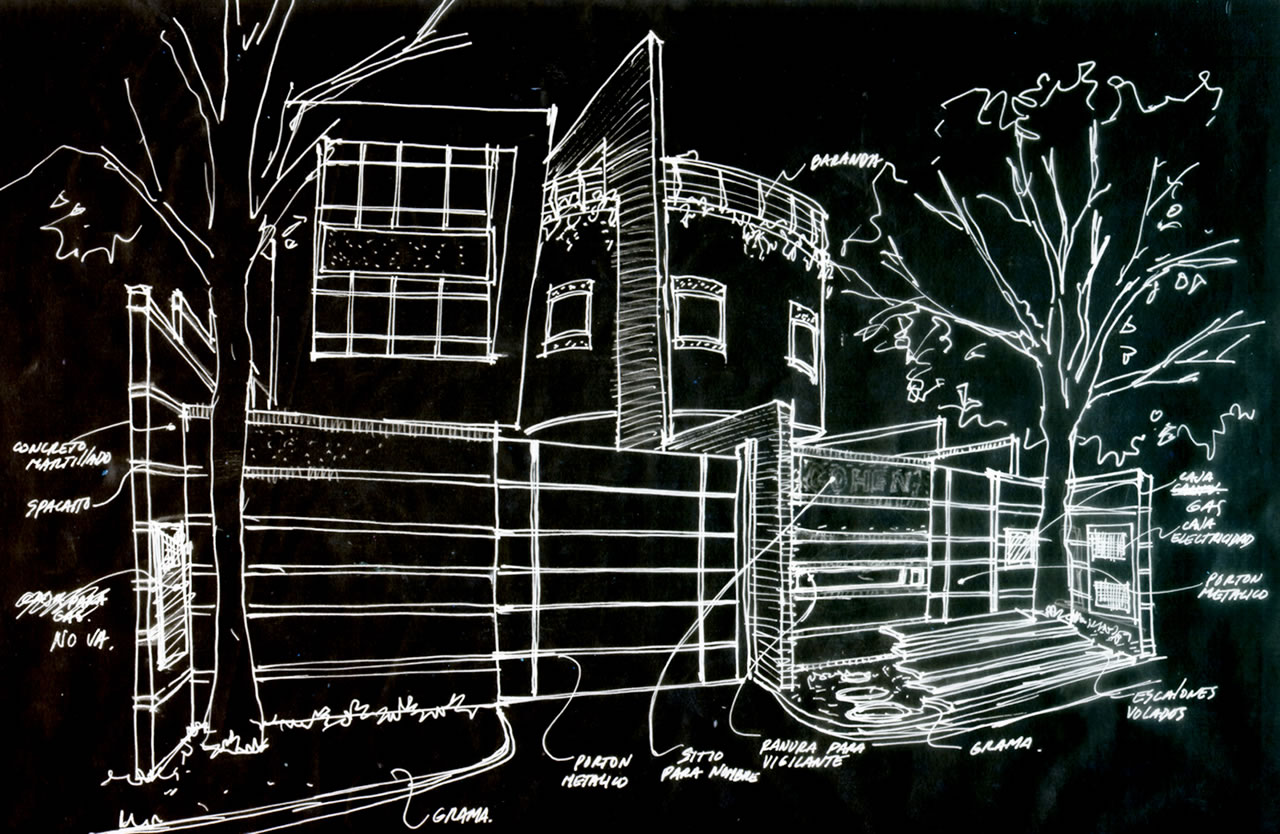 BARANDA
CONCRETO
MARTILLADO
SPACATTO
GAS.
NO VA.
COHEN
CAJA
GAS
CAJA
ELECTRICIDAD
PORTON
METALICO
ESCALONES
VOLADOS
GRAMA.
RANURA PARA
VIGILANTE
SITIO
PARA NOMBRE
PORTON
METALICO
GRAMA.